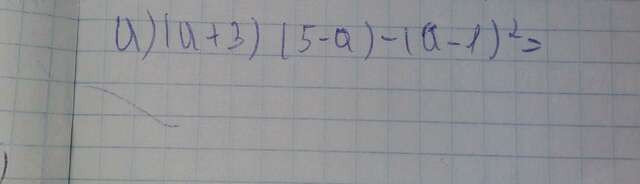 а) (а+3) (5-а) - (а-1)²=